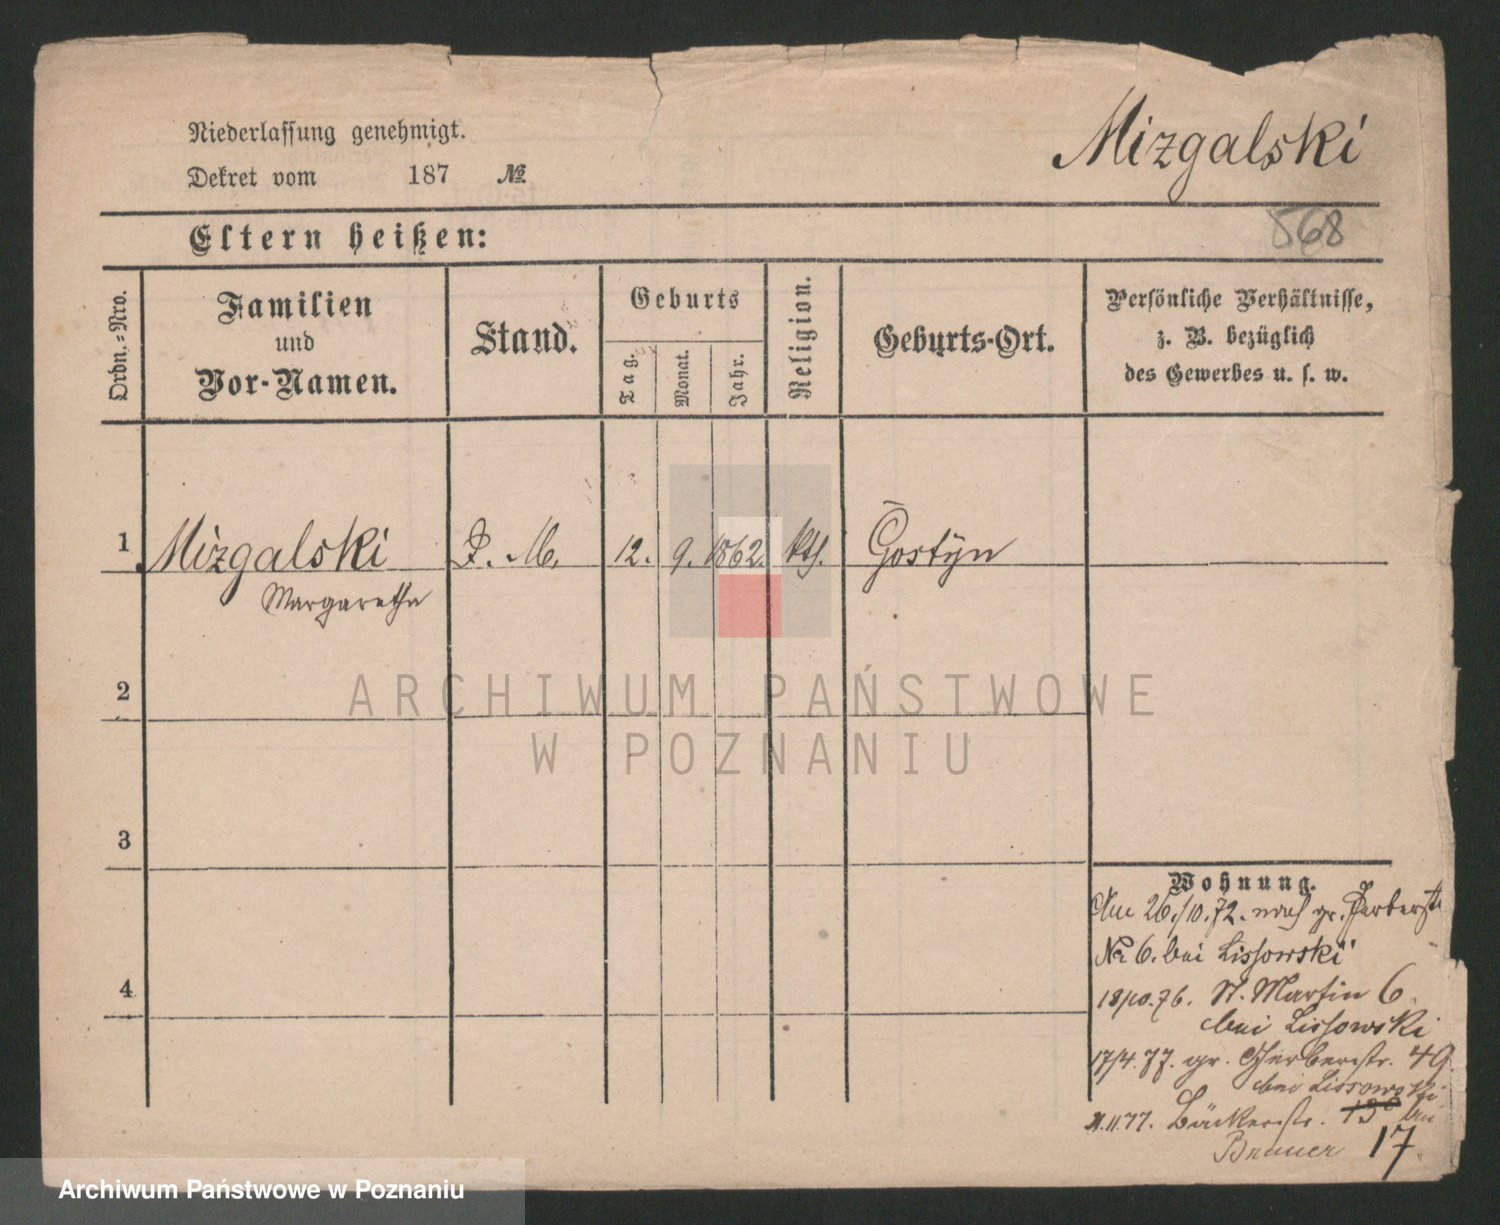 Niederlassung genehmigt.
Dekret vom 187 №
Mizgalski
868
Eltern heißen:
Ordn.-Nro.
Familien
und
Vor-Namen.
Stand.
Geburts
Tag.
Monat.
Jahr.
Religion.
Geburts-Ort.
Persönliche Verhältnisse,
z. B. bezüglich
des Gewerbes u. s. w.
1 Mizgalski D. M. 12. 9. 1862. kth. Gostÿn
Margaretha
ARCHIWUM PAŃSTWOWE
W POZNANIU
2
3
4
Wohnung.
26/10.72. nach gr. Gerberstr
No 6. bei Lissowski
18/10.76. St. Martin 6
bei Lissowski
17/4.77. gr. Gerberstr. 49
bei Lissowski
21.11.77. Bäckerstr. 13c bei
Brauer 17
Archiwum Państwowe w Poznaniu